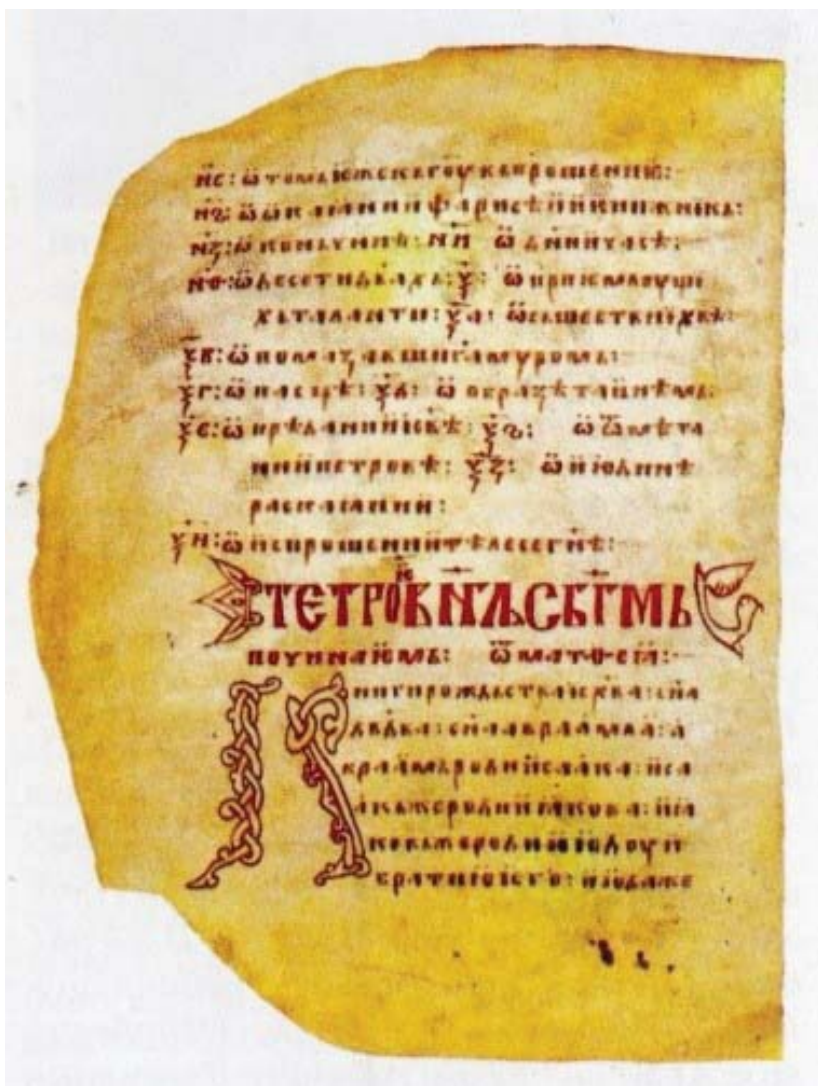 н҃є: ѡ томь ѥже сь к г҃оу вьпрошении:
н҃ѕ: ѡ ѡкаꙗнии фарисѣи и книжникь:
н҃з: ѡ коньчинѣ: н҃и ѡ д҃нии и часѣ:
н҃ѳ: ѡ десети дѣвахь: ѯ҃: ѡ приѥмлоущи
хь таланти: ѯ҃а: ѡ сьшьствии х҃вѣ:
ѯ҃в: ѡ помазавшии г҃а мѵромь:
ѯ҃г: ѡ пасцѣ: ѯ҃д: ѡ образѣ таинѣмь:
ѯ҃є: ѡ прѣдании і҃свѣ: ѯ҃ѕ: ѡ ѿмѣта
нии петровѣ: ѯ҃з: ѡ июдинѣ
раскаꙗнии:
ѯ҃и: ѡ испрошении тѣлесе г҃нѣ:
ТЕТРОѤВН҃ЛЬ С Б҃ГМЬ
починаѥмь: ѿ матѳеꙗ:
Книги рождьства і҃с х҃ва: с҃на
д҃вдва: с҃на авраамлꙗ: а
враамь роди исака: иса
акь же роди иꙗкова: иꙗ
ковь же роди июдоу и
братию ѥго: июда же